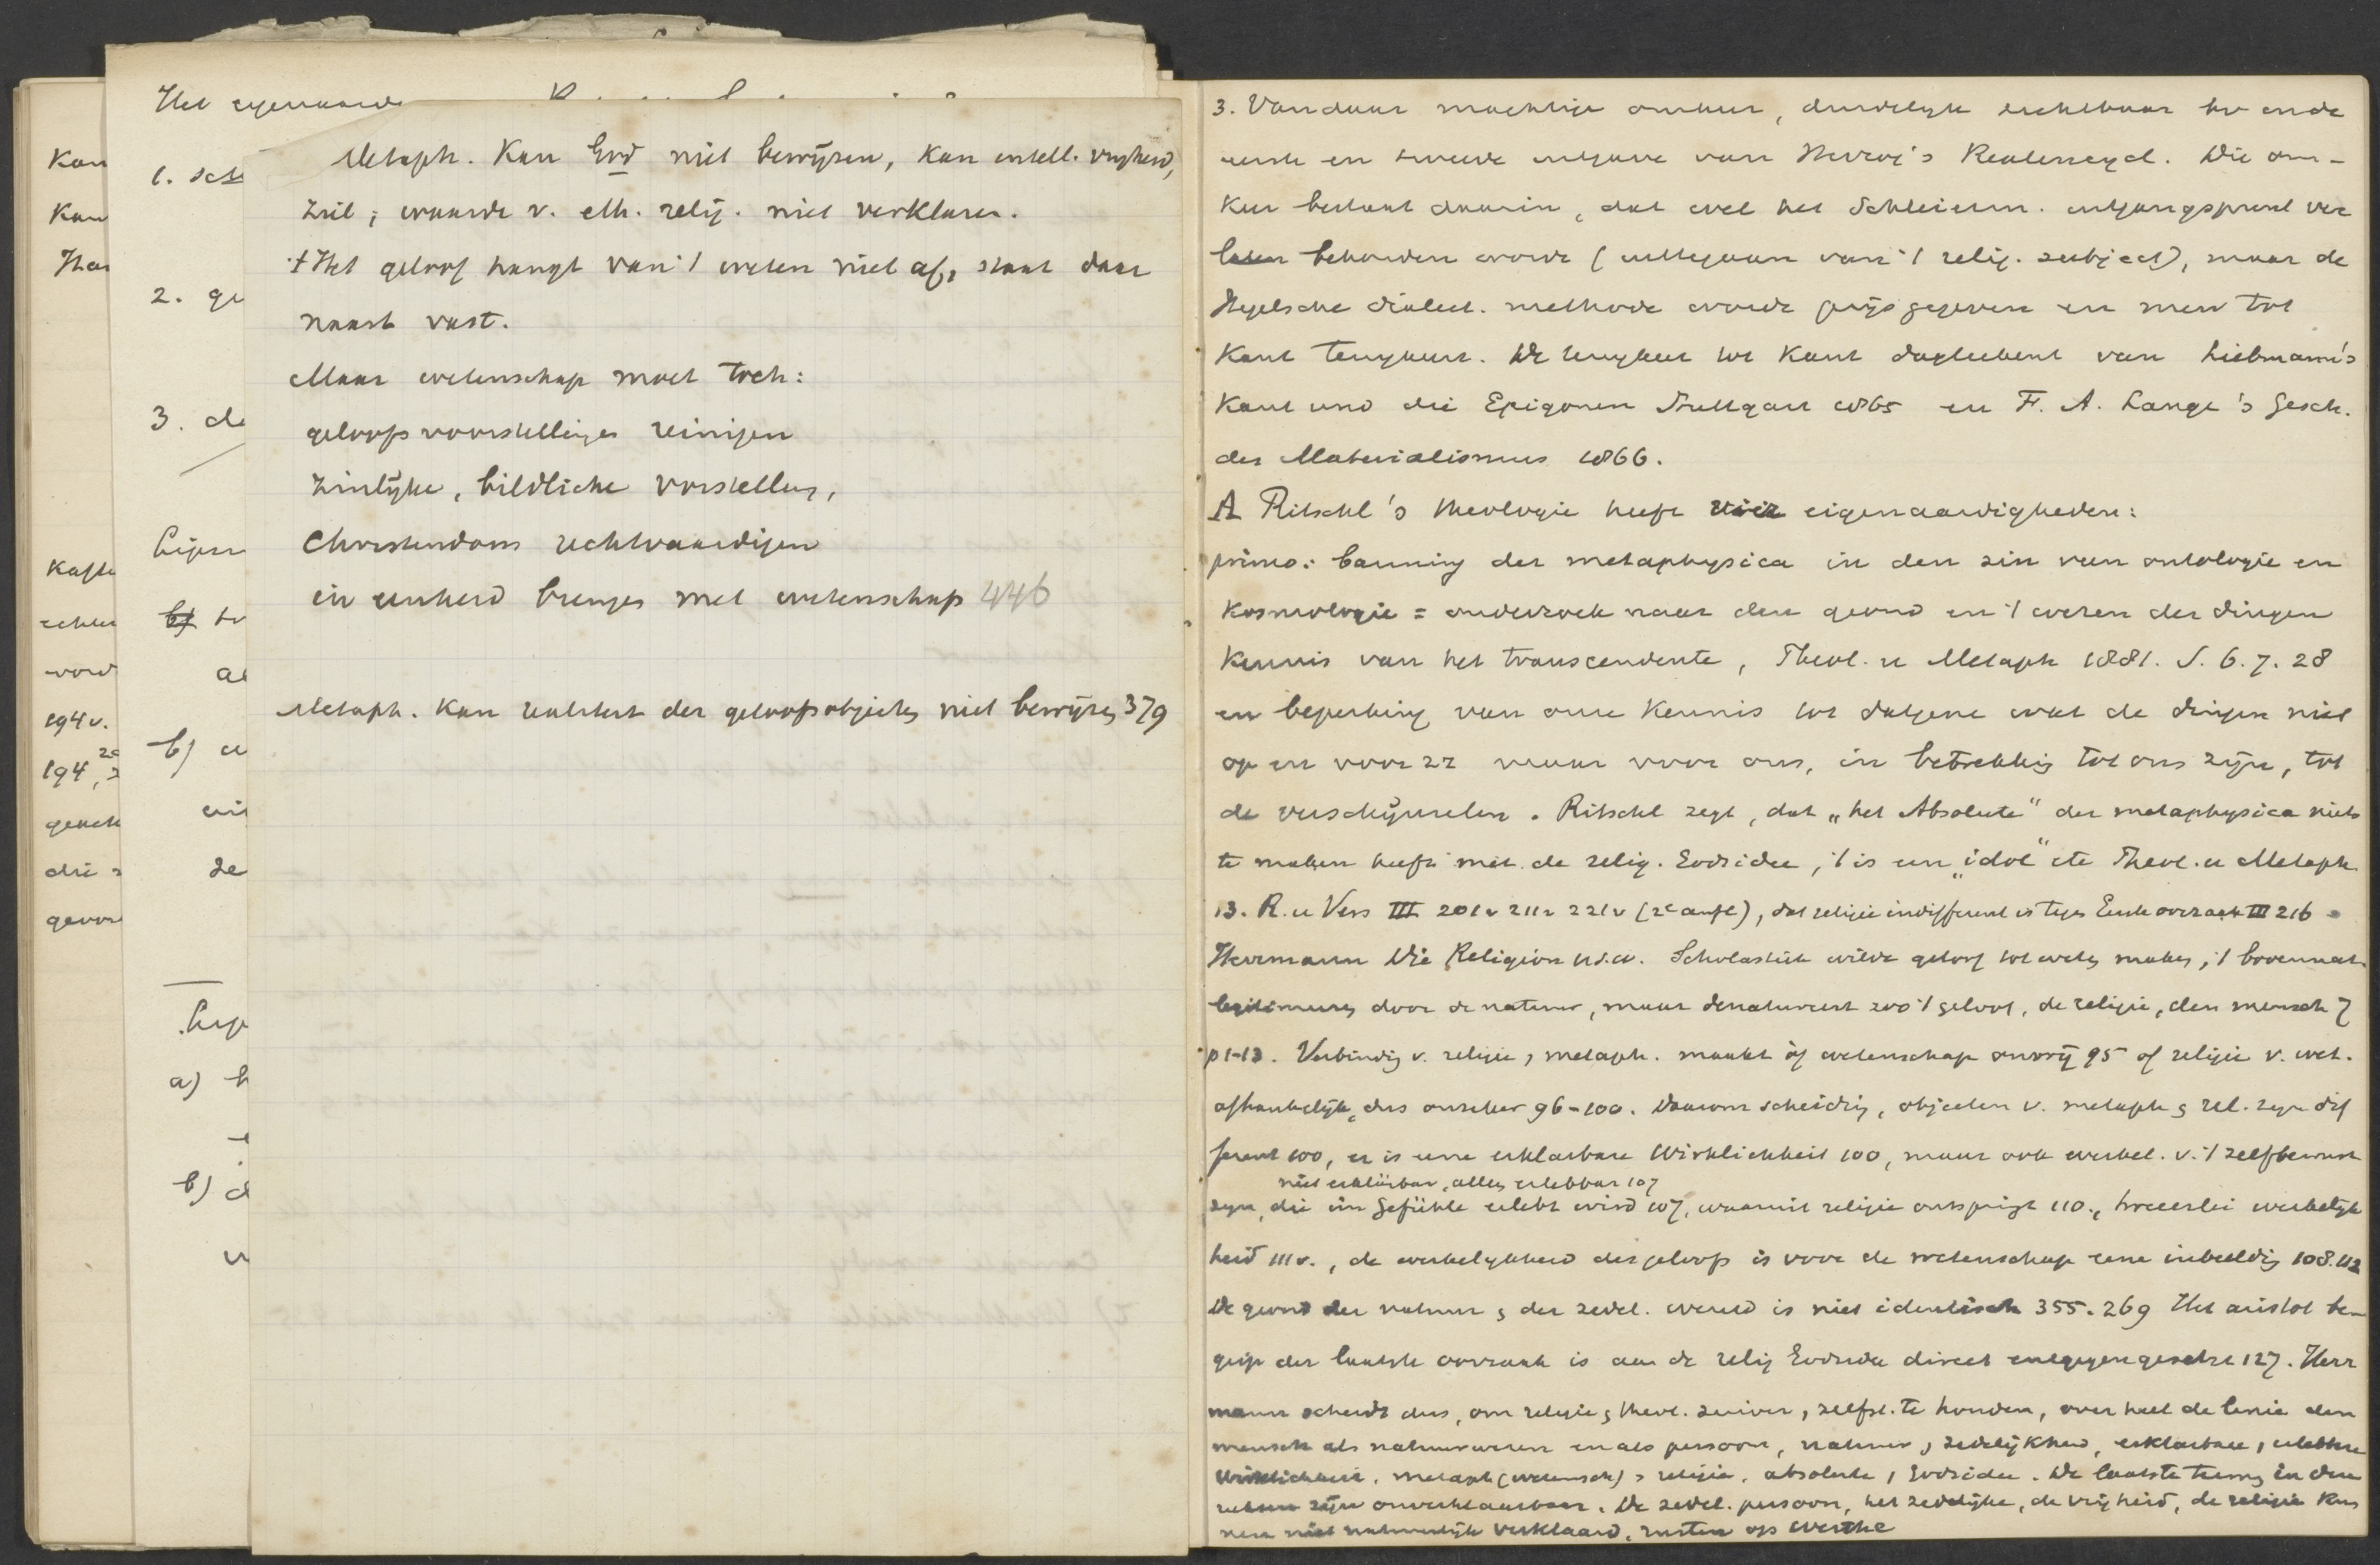 Het eigenaardi
Kan
Kan
Har
Kafta
echter
word
194 v.
194,
geneh
die
gevor
1. sch
2. ge
3. de
b)
a)
b)
Metaph. Kan God niet bewijzen, Kan intell. vrijheid,
ziel; waarde v. eth. relig. niet verklaren.
Het geloof hangt van 't weten niet af, staat daar
naast vast.
Maar wetenschap moet toch:
geloofsvoorstellingen reinigen
Zinlijke, bildliche Vorstellung,
Christendom rechtvaardigen
in eenheid brengen met wetenschap 446
Metaph. Kan realiteit der geloofsobjecten niet bewijzen 379
3. Vandaar machtige omkeer, duidelijk zichtbaar in de
eerste en tweede uitgave van Herzog's Realencycl. Die om-
Keer bestaat daarin, dat wel het Schleierm. uitgangspunt ver
laten behouden wordt (uitgaan van 't relig. subject), maar de
Hegelsche dialect. methode wordt prijsgegeven en men tot
Kant terugkeert. De terugkeer tot Kant dagteekent van Liebmann's
Kant und die Epigonen Stuttgart 1865 en F. A. Lange's Gesch.
des Materialismus 1866.
A Ritschl's theologie heeft vier eigenaardigheden:
primo: banning der metaphysica in den zin van ontologie en
Kosmologie = onderzoek naar den grond en 't wezen der dingen
Kennis van het transcendente, Theol. u Metaph 1881. S. 6. 7. 28
en beperking van onze Kennis tot datgene wat de dingen niet
op en voor zz maar voor ons, in betrekking tot ons zijn, tot
de verschijnselen. Ritschl zegt, dat „het Absolute" der metaphysica niets
te maken heeft met de relig. Godsidee, 't is een „idol" etc Theol. u Metaph
13. R. u Vers III 201v 211v 221v (2e aufl), dat religie indifferent is tegen Eerste oorzaak III 216
Herrmann Die Religion u.s.w. Scholastiek wilde geloof tot weten maken, 't bovennat.
legitimeeren door de natuur, maar denatureert zoo 't geloof, de religie, den mensch 7
p 1-13. Verbinding v. religie, metaph. maakt óf wetenschap onvrij 95 of religie v. wet.
afhankelijk, dus onzeker 96-100. Daarom scheiding, objecten v. metaph & rel. zijn dif
ferent 100, er is eene erklarbare Wirklichkeit 100, maar ook werkel. v. 't zelfbewust
niet erklärbar, alleen erlebbar 107
zijn, die im Gefühle erlebt wird 107, waaruit religie ontspringt 110, tweeerlei werkelijk
heid 111 v., de werkelijkheid des geloofs is voor de wetenschap eene inbeelding 108. 112
De grond der natuur & der zedel. wereld is niet identisch 355. 269 Het aristot be-
grip der laatste oorzaak is aan de relig Godsidee direct entgegengesetzt 127. Herr
mann scheidt dus, om religie & theol. zuiver, zelfst. te houden, over heel de linie den
mensch als natuurwezen en als persoon, natuur, zedelijkheid, erklarbare, erlebbare
Wirklichkeit, metaph (wetensch), religie, absolute, Godsidee. De laatste termen in deze
zijn onverklaarbaar. De zedel. persoon, het zedelijke, de vrijheid, de religie kun
nen niet natuurlijk verklaard, rusten op Werthe